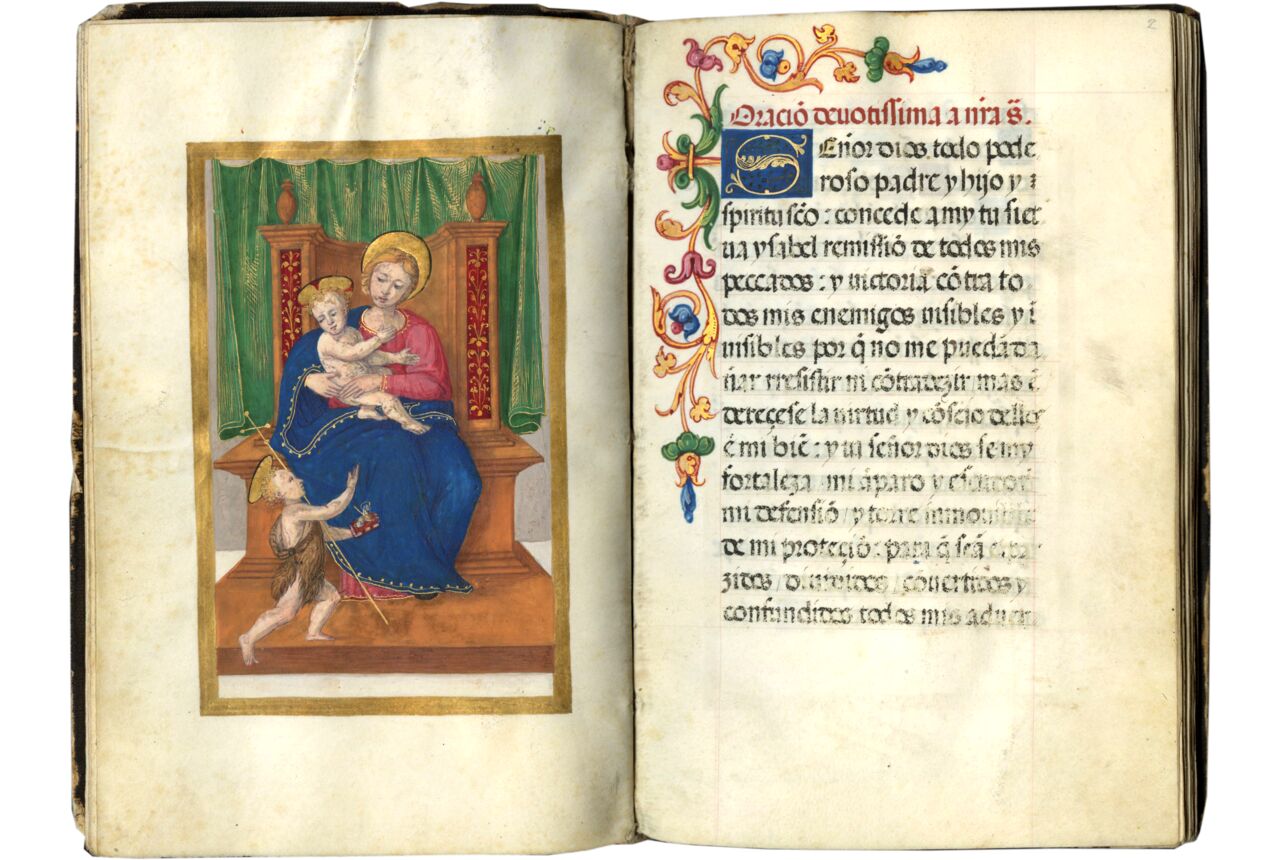 2
Oració deuotissima a nr̃a s̃.
Señor dios todo pode
roso padre y hijo y
spiritu sc̃o : concede a my tu sier
ua ysabel remissiõ de todos mis
peccados : y victoria cõtra to
dos mis enemigos uisibles y ĩ
uisibles por q̃ no me puedã da
ñar rresistir ni cõtradezir mas ẽ
derecese la virtud y cõsejo dellos
ẽ mi biẽ : y tu señor dios se my
fortaleza mi ãparo y
mi defensiõ / y torre
de mi proteciõ : para q̃ seã
zidos / diuididos / cõuertidos y
confundidos todos mis aduer